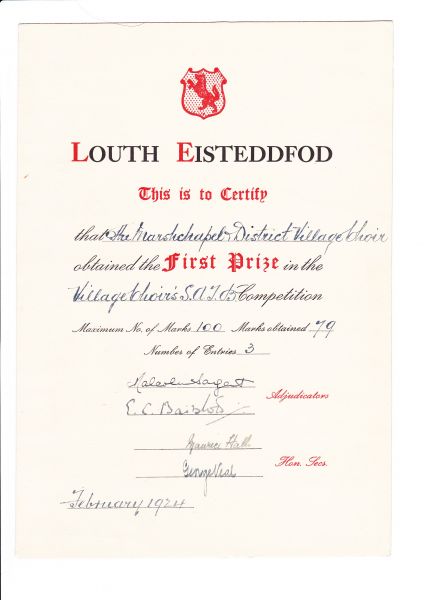 LOUTH EISTEDDFOD
This is to Certify
that the Marshchapel & District Village Choir
obtained the First Prize in the
Village Choir's S.A.T.B Competition
Maximum No. of Marks 100 Marks obtained 79
Number of Entries 3
Malcolm Sargent
E. C. Bairstow
Adjudicators
Maurice Hall
George Vial
Hon. Secs.
February 1924